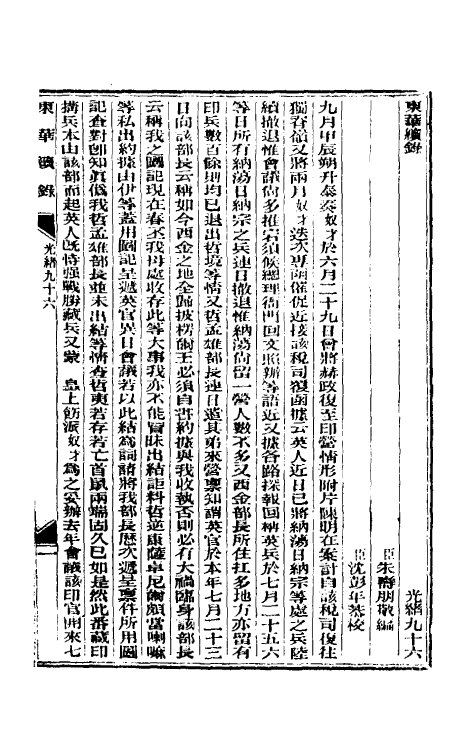 東華續錄
光緒九十六
臣朱壽朋敬編
臣沈彭年恭校
九月甲辰朔升泰奏奴才於六月二十九日會將赫政復至印營情形附片陳明在案計自該稅司復往
獨脊嶺又將兩月奴才迭次專函催促近接該稅司復函據云英人近日已將納蕩日納宗等處之兵陸
續撤退惟會議尚多推宕須候總理衙門回文照辦等語近又據各路探報回稱英兵於七月二十五六
等日所有納蕩日納宗之兵連日撤退惟納蕩尚留一營人數不多又西金部長所住扛多地方亦留有
印兵數百餘則均已退出哲境等情又哲孟雄部長連日遣其弟來營稟知謂英官於本年七月二十三
日向該部長云稱如今西金之地全歸披楞你王必須自書約據與我收執否則必有大禍臨身該部長
云稱我之圖記現在春丕我母處收存此等大事我亦不能冒昧出結詎料哲逆康薩卓尼爾頗當喇嘛
等私出約據由伊等蓋用圖記呈遞英官異日會議若以此結為詞請將我部長歷次遞呈稟件所用圖
記查對即知真偽我哲孟雄部長並未出結等情查哲夷若存若亡首鼠兩端固久已如是然此番藏印
搆兵本由該部而起英人既恃强戰勝藏兵又蒙 皇上飭派奴才為之妥辦去年會議該印官開來七
東華續錄
光緒九十六